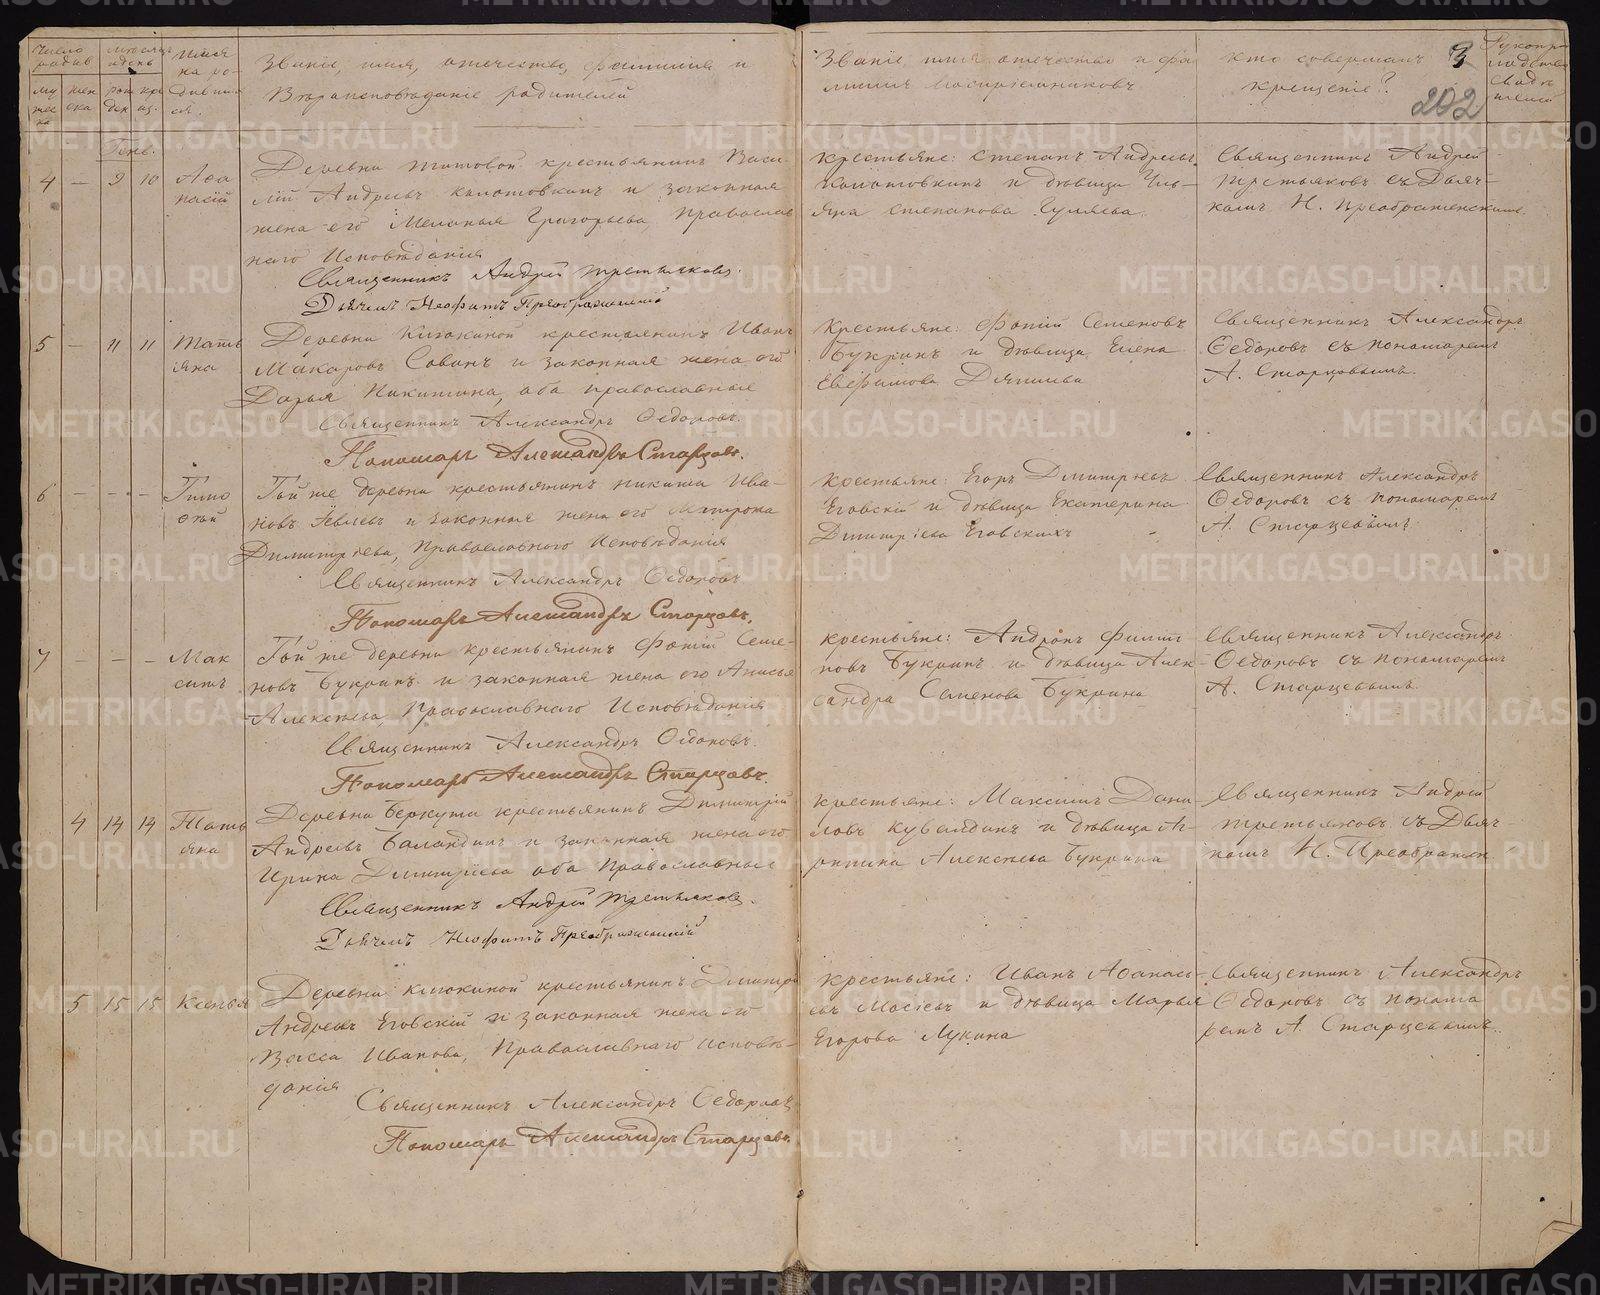 Число родив
мѣсяцъ и день
Имя на ро-
дивши-
ся.
муже
ска
жен
ска
рож
ден
кре
щ.
Званіе, имя, отчество, фамилія и
Вѣроисповѣданіе родителей
Званіе, имя отчество и фа
милія Воспріемниковъ
кто совершалъ
крещеніе?
3
202
Рукопри
кладство
свидѣ
телей
Генв.
4 — 9 10
Аѳа
насій
Деревни Титовой крестьянинъ Васи-
лій Андреевъ Колотовкинъ и законная
жена его Меланья Григорьева, Православ
наго Исповѣданія
Священникъ Андрей Третьяковъ.
Дьячекъ Неофитъ Преображенскій
Крестьяне: Степанъ Андреевъ
Колотовкинъ и дѣвица Улья-
яна Степанова Гуляева.
Священникъ Андрей
Третьяковъ съ Дьяч-
комъ Н. Преображенскимъ.
5 — 11 11
Тать
яна
Деревни Клюкиной крестьянинъ Иванъ
Макаровъ Савинъ и законная жена его
Дарья Никитина, оба православные
Священникъ Александръ Ѳедоровъ.
Пономарь Александръ Старцовъ.
Крестьяне: Фотій Семеновъ
Букринъ и дѣвица Елена
Евфимова
Священникъ Александръ
Ѳедоровъ съ пономаремъ
А. Старцовымъ.
6 — — —
Тимо
ѳей
Той же деревни крестьянинъ Никита Ива-
новъ и законная жена его Матрона
Димитріева, Православного Исповѣданія
Священникъ Александръ Ѳедоровъ
Пономарь Александръ Старцовъ.
Крестьяне: Егоръ Дмитріевъ
Еговскій и дѣвица Екатерина
Дмитріева Еговскихъ
Священникъ Александръ
Ѳедоровъ съ пономаремъ
А. Старцевымъ.
7 — — —
Мак
симъ
Той же деревни крестьянинъ Фотій Семе-
новъ Букринъ и законная жена его Анисья
Алексѣева, Православнаго Исповѣданія
Священникъ Александръ Ѳедоровъ.
Пономарь Александръ Старцовъ.
Крестьяне: Андронъ Филип
повъ Букринъ и дѣвица Алек-
сандра Семенова Букрина
Священникъ Александръ
Ѳедоровъ съ пономаремъ
А. Старцевымъ.
4 14 14
Тать
яна
Деревни Беркута крестьянинъ Димитрій
Андреевъ Баландинъ и законная жена его
Ирина Дмитріева оба Православные
Священникъ Андрей Третьяковъ.
Дьячекъ Неофитъ Преображенскій
Крестьяне: Максимъ Дани-
ловъ Кувалдинъ и дѣвица Аг-
рипина Алексѣева Букрина
Священникъ Андрей
Третьяковъ съ Дьяч-
комъ Н. Преображен.
5 15 15
Ксенья
Деревни Клюкиной крестьянинъ Дмитрій
Андреевъ Еговскій и законная жена его
Васса Иванова, Православнаго Исповѣ-
данія
Священникъ Александръ Ѳедоровъ
Пономарь Александръ Старцовъ.
Крестьяне: Иванъ Аѳанась-
евъ Мосеевъ и дѣвица Марья
Егорова Лукина
Священникъ Александръ
Ѳедоровъ съ понома
ремъ А. Старцевымъ.
METRIKI.GASO-URAL.RU